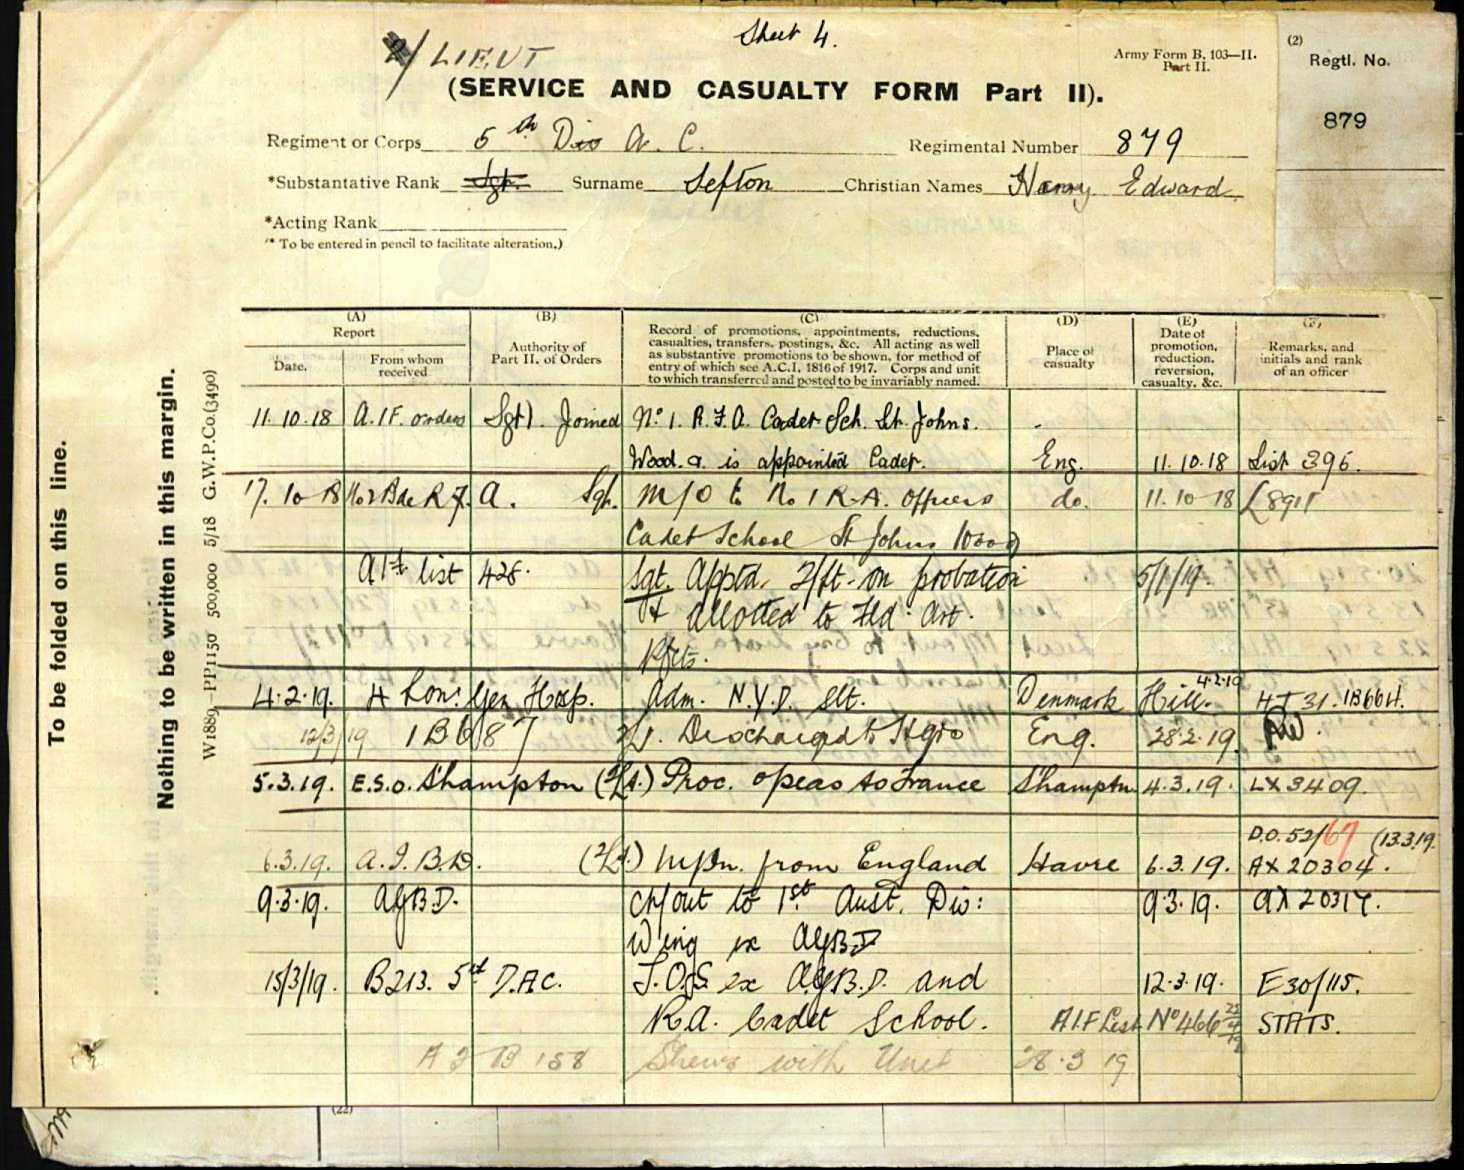 Sheet 4.
2/ LIEUT
Army Form B. 103—II.
Part II.
(SERVICE AND CASUALTY FORM Part II).
(2)
Regtl. No.
879
Regiment or Corps 5th Div A. C. Regimental Number 879
*Substantative Rank Sgt. Surname Sefton Christian Names Harry Edward
*Acting Rank
(* To be entered in pencil to facilitate alteration.)
To be folded on this line.
Nothing to be written in this margin.
W1889.—PP1150 500,000 5/18 G.W.P.Co.(3490)
(A) (B) (C) (D) (E) (F)
Report
Date. From whom received
Authority of Part II. of Orders
Record of promotions, appointments, reductions,
casualties, transfers, postings, &c. All acting as well
as substantive promotions to be shown, for method of
entry of which see A.C.I. 1816 of 1917. Corps and unit
to which transferred and posted to be invariably named.
Place of casualty
Date of promotion, reduction, reversion, casualty, &c.
Remarks, and initials and rank of an officer
11.10.18 A.I.F. orders Sgt). Joined No. 1. R.F.A. Cadet Sch. St. Johns.
Wood. & is appointed Cadet. Eng. 11.10.18 List 396.
17.10.18 No 2 Bde R.F. A. Sgt. M/O to No 1 R.A. Officers do. 11.10.18 L8911
Cadet School St Johns Wood
AIF list 428. Sgt. Apptd. 2/Lt. on probation 5/1/19.
& allotted to Fld Art.
Rfts.
4.2.19. 4 Lon: Gen Hosp. Adm. N.Y.D. Slt. Denmark Hill. 4.2.19 HJ 31. 1B664.
12/3/19 1B6187 2/Lt. Discharged to Hqrs Eng. 28.2.19. AW.
5.3.19. E.S.O. S'hampton (2/Lt.) Proc. o'seas to France S'hamptn 4.3.19. LX3409.
D.O. 52/67 (13.3.19.
6.3.19. A.G.B.D. (2/Lt.) M/In. from England Havre 6.3.19. AX 20304.
9.3.19. AGBD. M/out to 1st Aust. Div: 9.3.19. AX 20317.
Wing ex AGBD
15/3/19. B213. 5th D.A.C. T.O.S. ex A.G.B.D. and 12.3.19. E30/115.
R.A. Cadet School. AIF List No 466 STATS.
B 158 Shews with Unit 28.3.19
(22)